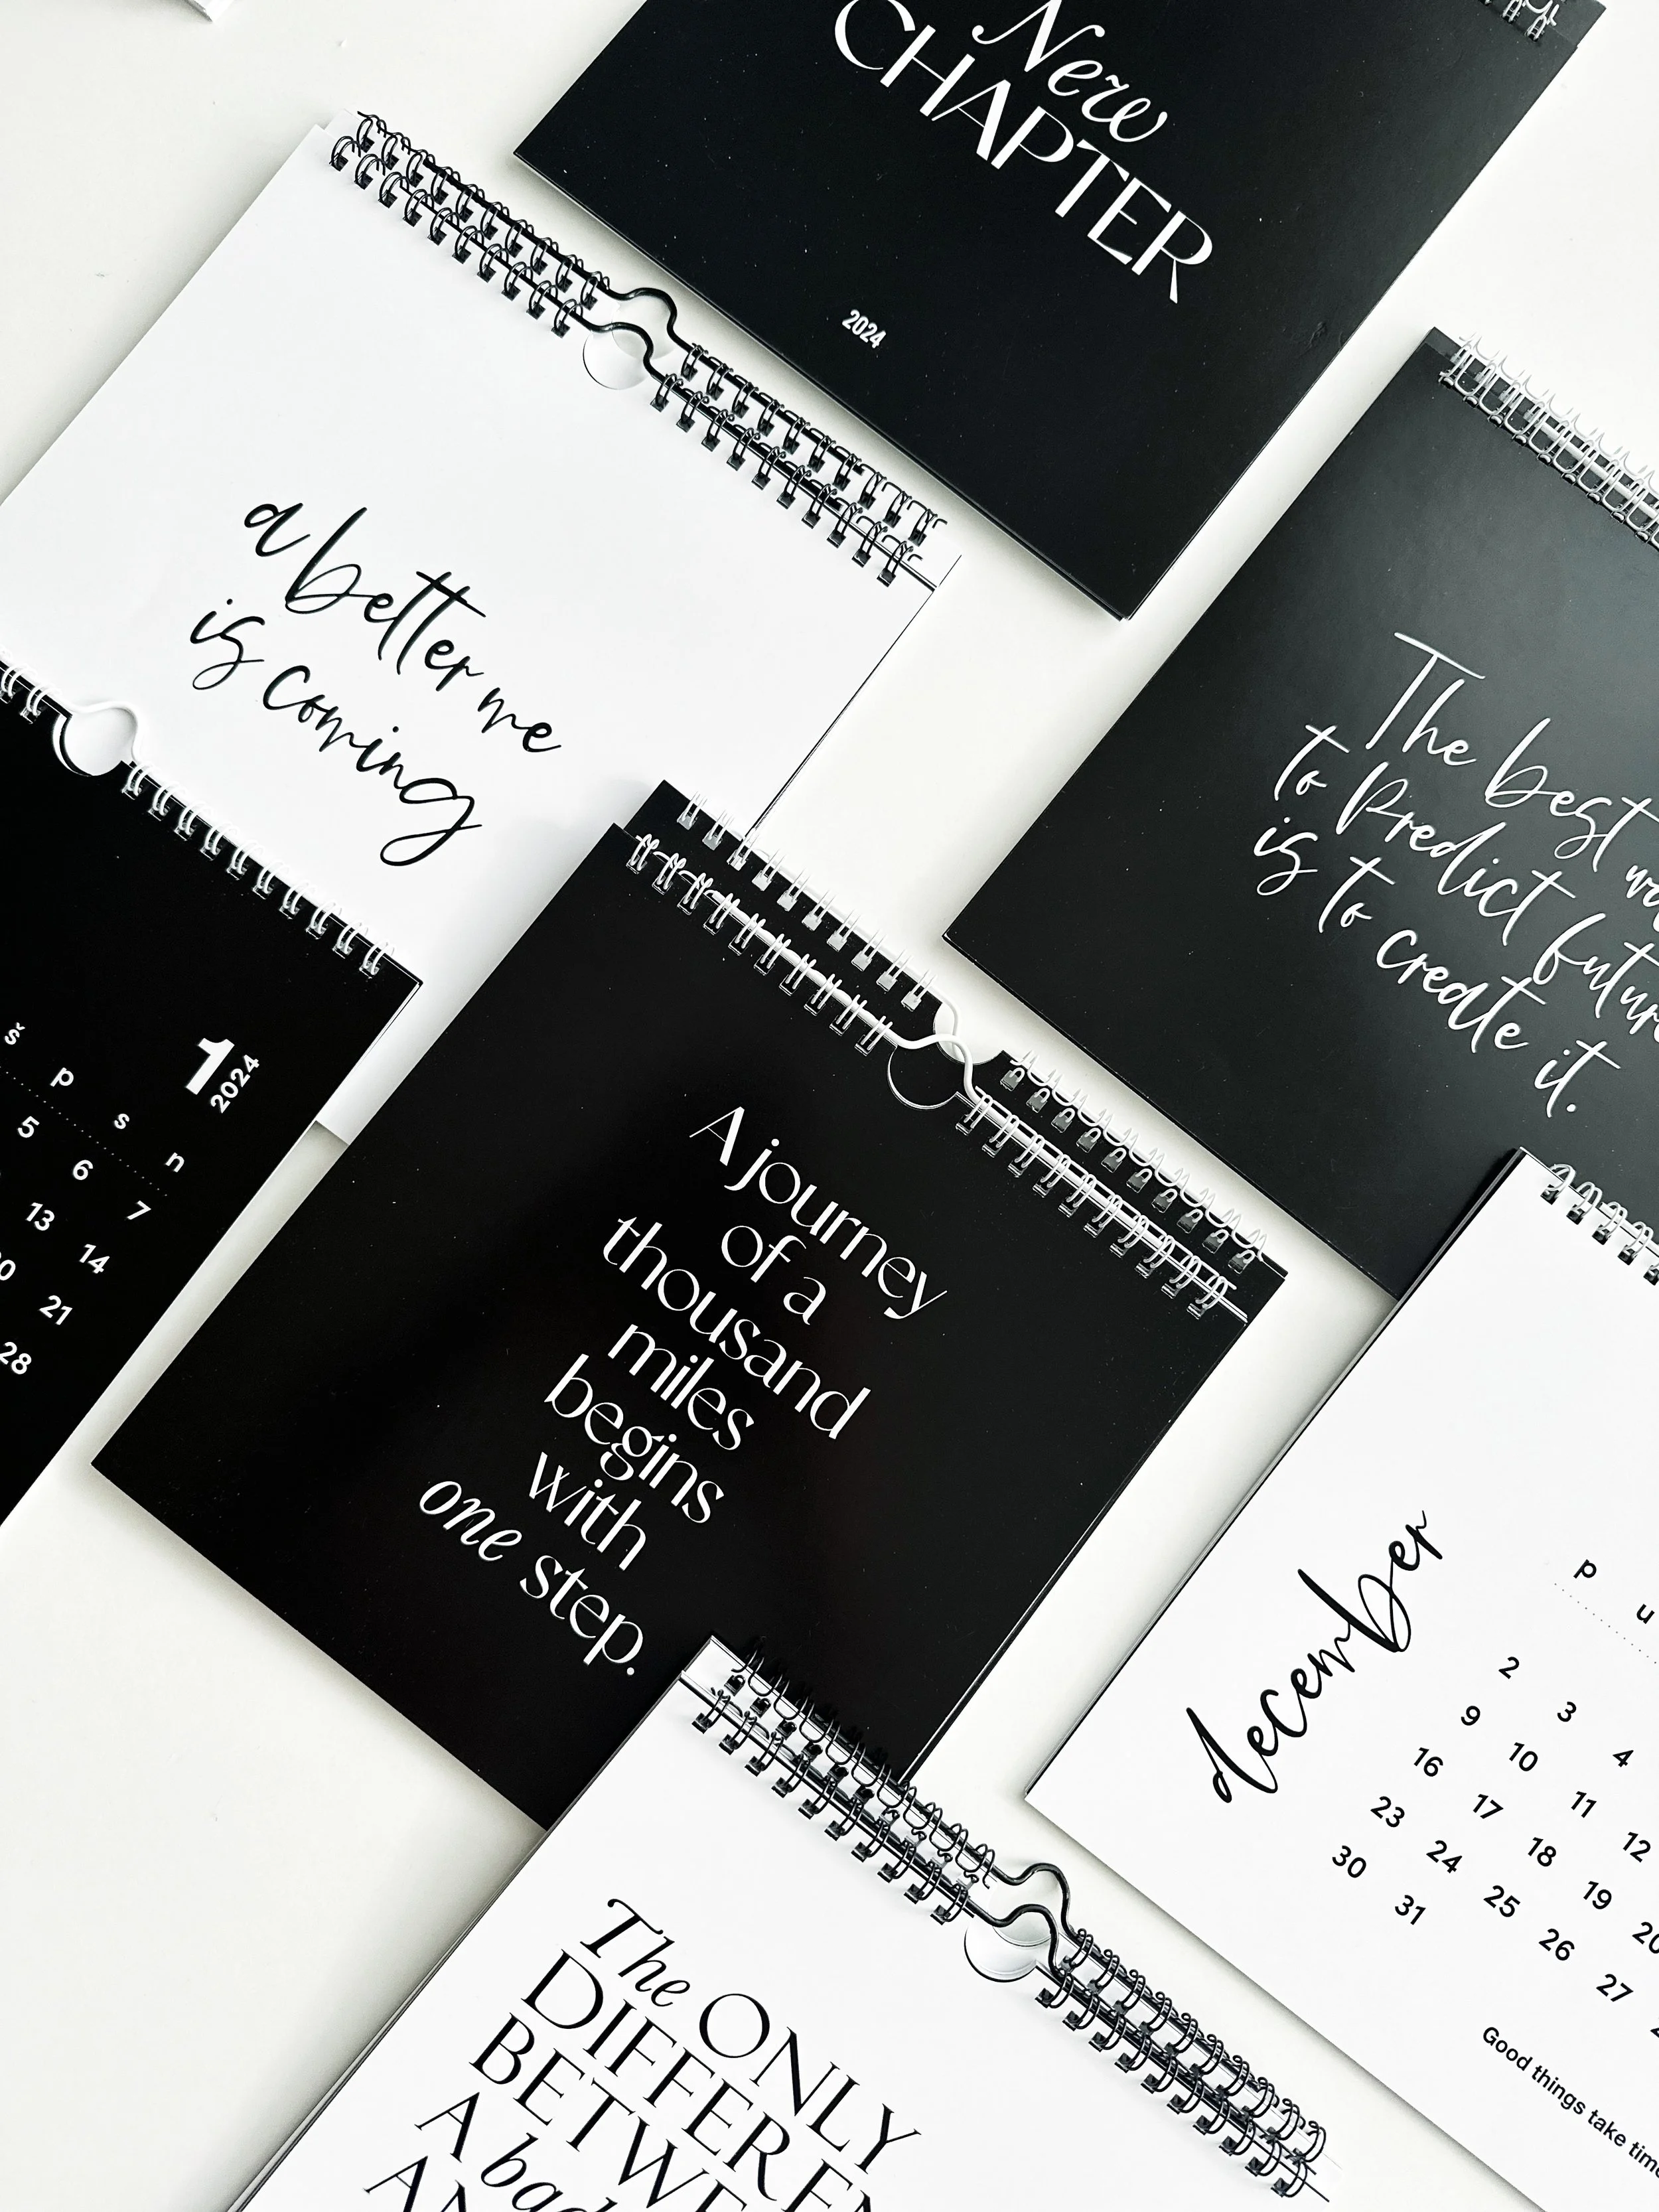 New
CHAPTER
2024
a better me
is coming
The best
to Predict
is to create it.
š p s n
1
2024
5 6 7
13 14
21
28
A journey
of a
thousand
miles
begins
with
one step.
december
p u
2 3 4
9 10 11 12
16 17 18 19
23 24 25 26 27
30 31
Good things take
The ONLY
A bad